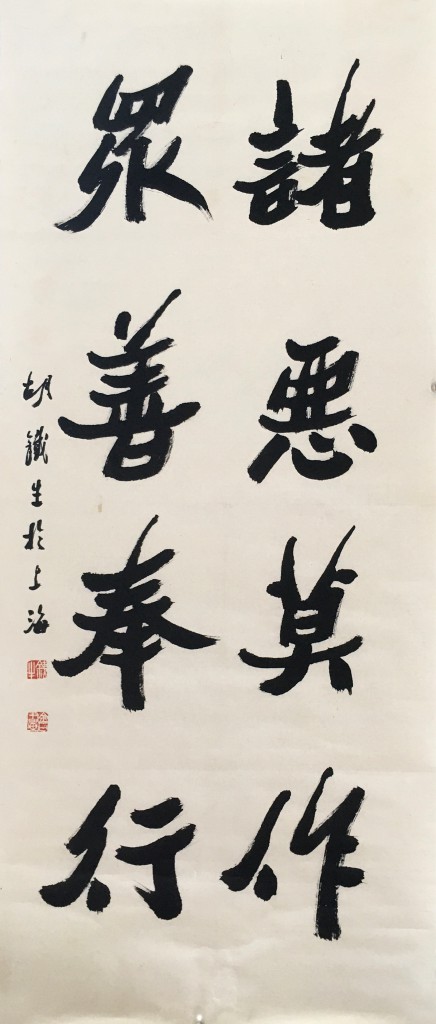 諸惡莫作
眾善奉行
胡鐵生於上海